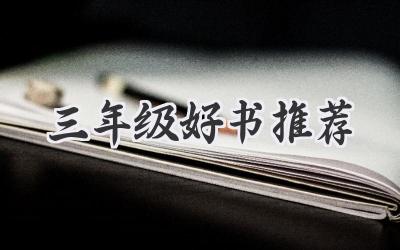 三年级好书推荐